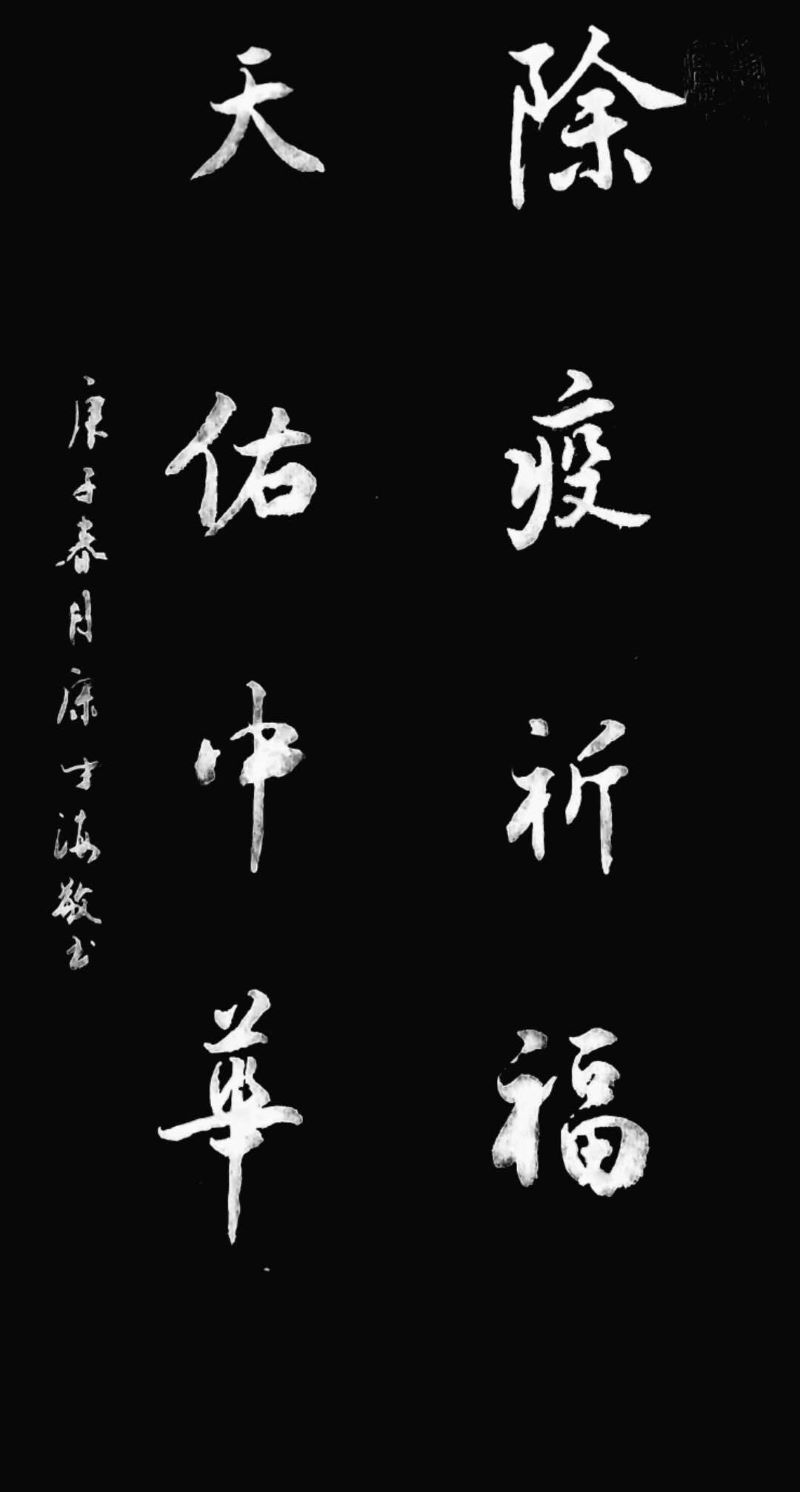 除疫祈福
天佑中華
庚子春月康才海敬书